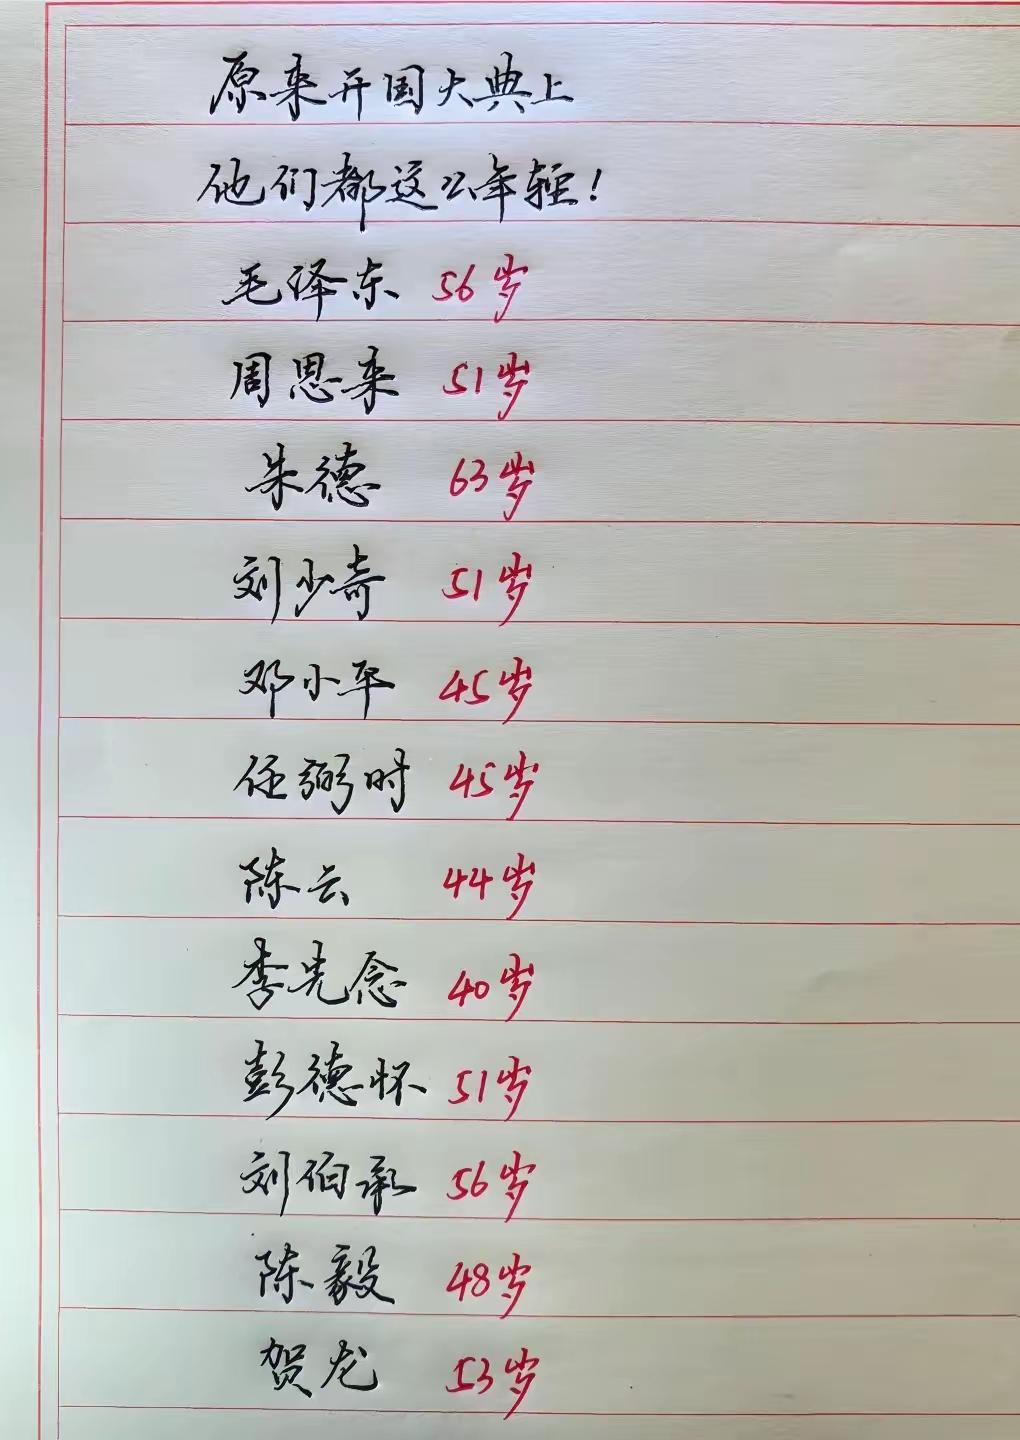 原来开国大典上
他们都这么年轻!
毛泽东 56岁
周恩来 51岁
朱德 63岁
刘少奇 51岁
邓小平 45岁
任弼时 45岁
陈云 44岁
李先念 40岁
彭德怀 51岁
刘伯承 56岁
陈毅 48岁
贺龙 53岁